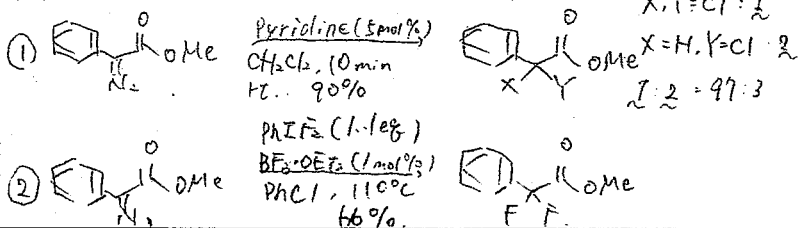 X,Y=Cl : 1
① O OMe N₂ Pyridine (5mol%) CH₂Cl₂, 10 min rt.. 90% O OMe X Y X=H, Y=Cl 2
1 : 2 = 97:3
② O OMe N₂ PhIF₂ (1.1eq) BF₃·OEt₂ (1mol%) PhCl, 110°C 66% O OMe F F